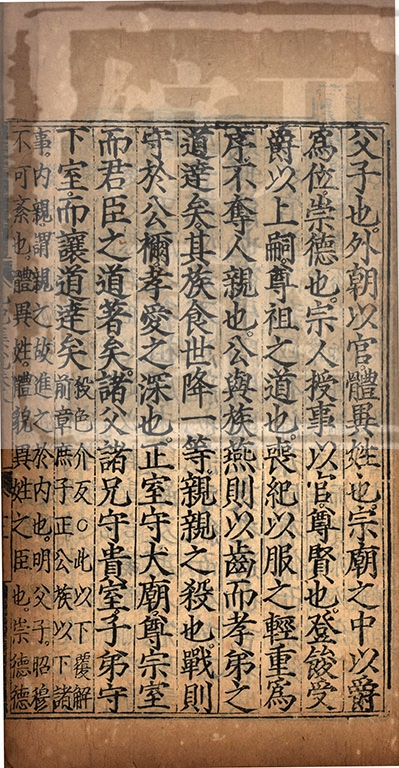 父子也。外朝以官。體異姓也。宗廟之中以爵
爲位。崇德也。宗人授事以官。尊賢也。登餕受
爵以上嗣。尊祖之道也。喪紀以服之輕重爲
序。不奪人親也。公與族燕則以齒。而孝弟之
道達矣。其族食世降一等。親親之殺也。戰則
守於公禰。孝愛之深也。正室守大廟。尊宗室
而君臣之道著矣。諸父諸兄守貴室。子弟守
下室。而讓道達矣
殺色介反○此以下覆解
前章庶子正公族以下諸
事。内親謂親之故進之於内也。明父子。昭穆
不可紊也。體異姓。體貌異姓之臣也。崇德德